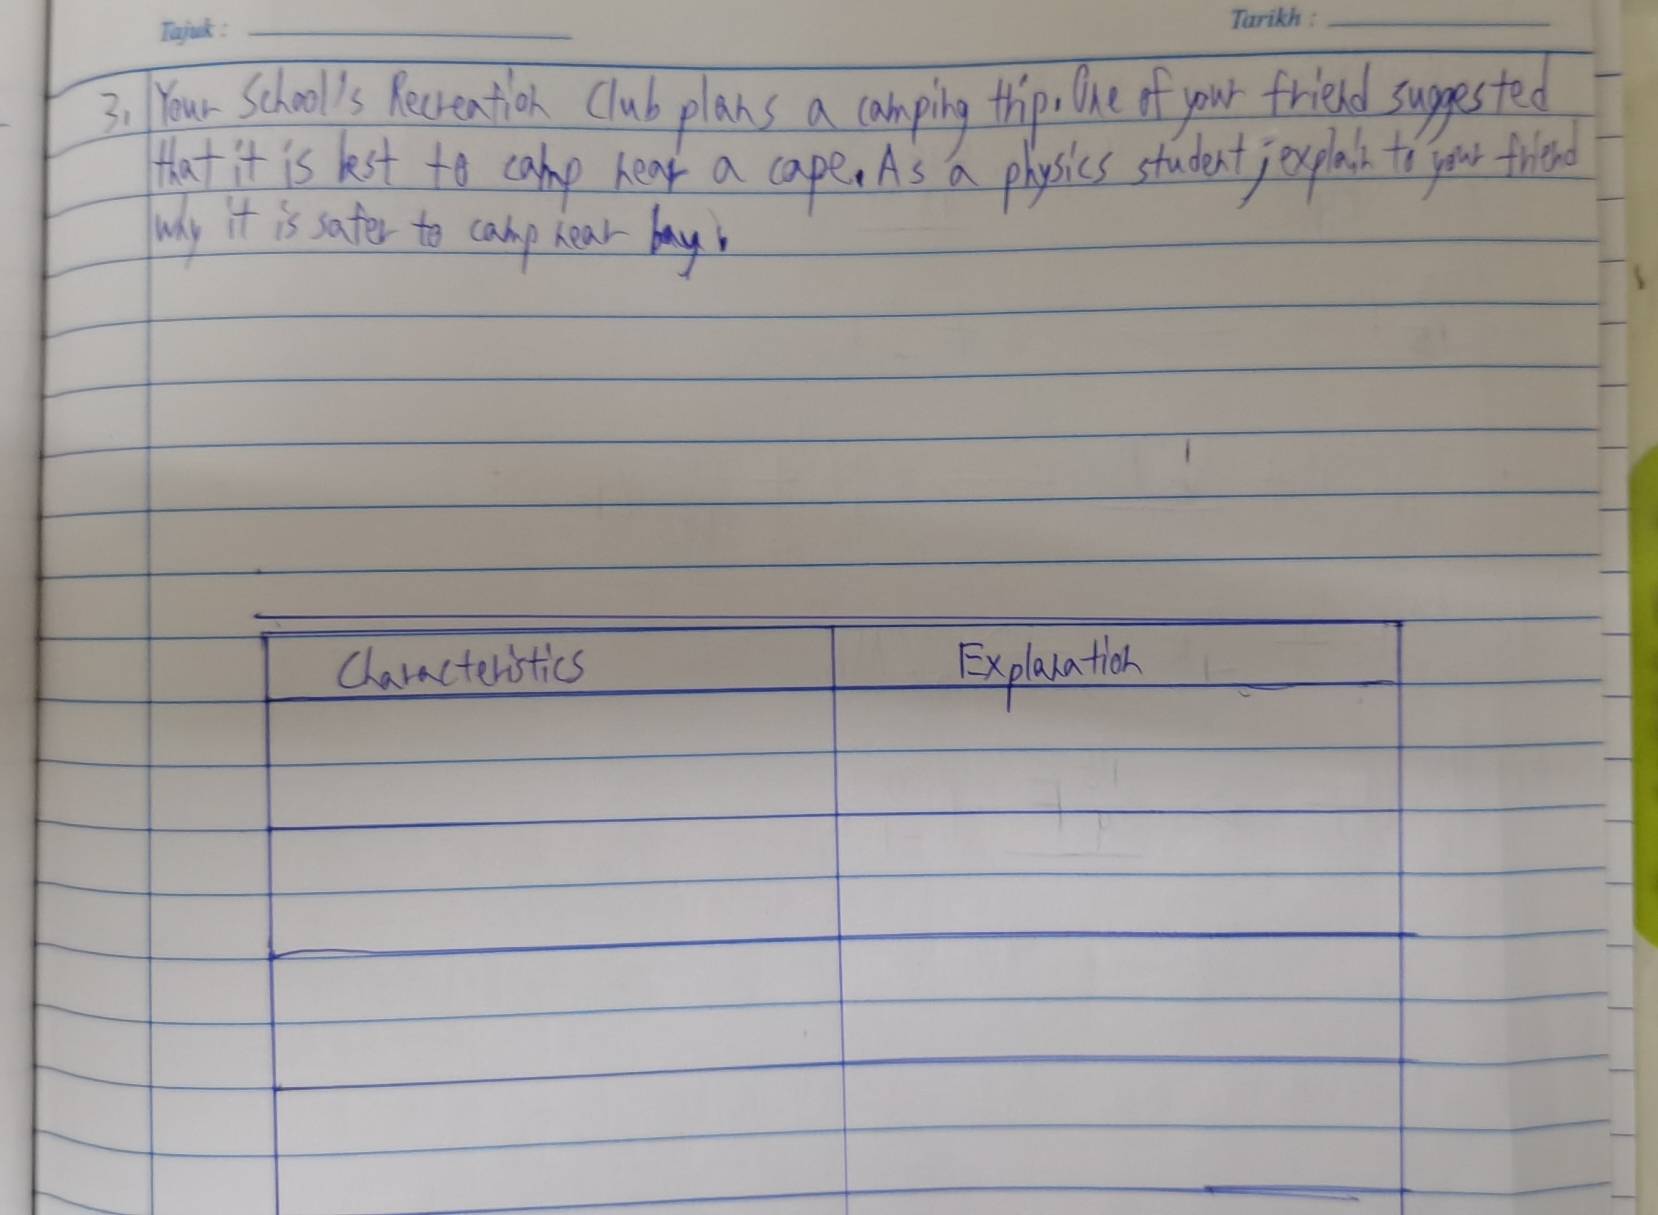 Tajuk :
Tarikh :
3. Your School's Recreation Club plans a camping trip. One of your friend suggested
that it is best to camp near a cape. As a physics student, explain to your friend
why it is safer to camp near bay.
Characteristics
Explanation